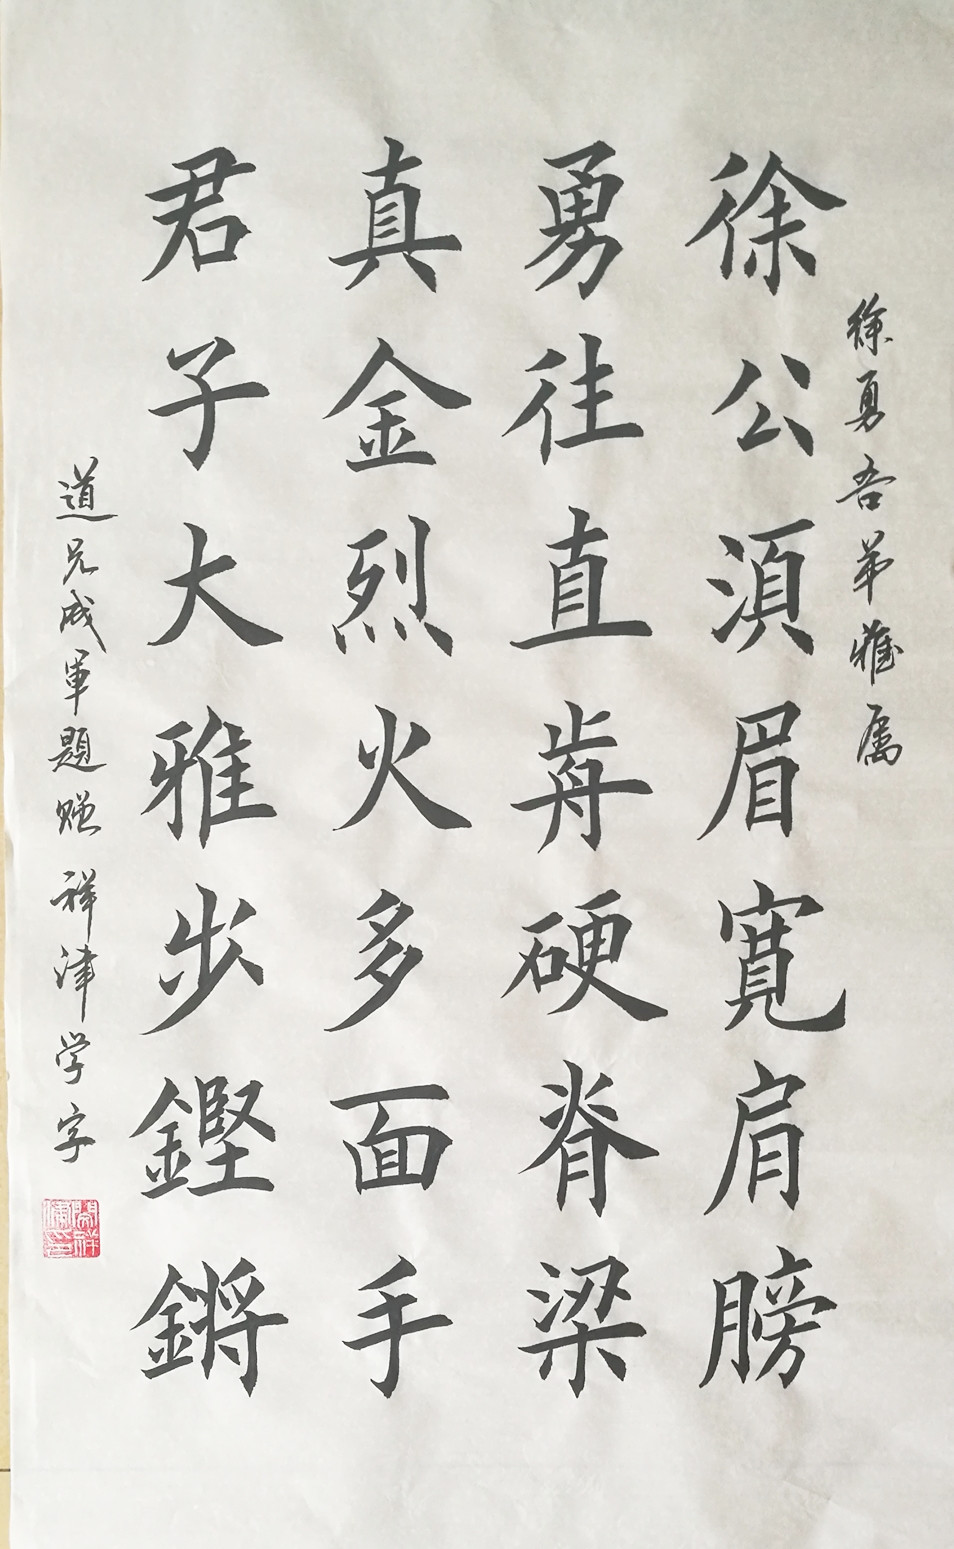 徐勇吾弟雅属
徐公須眉寬肩膀
勇往直前硬脊梁
真金烈火多面手
君子大雅步鏗鏘
道兄成軍題贈 祥津学字